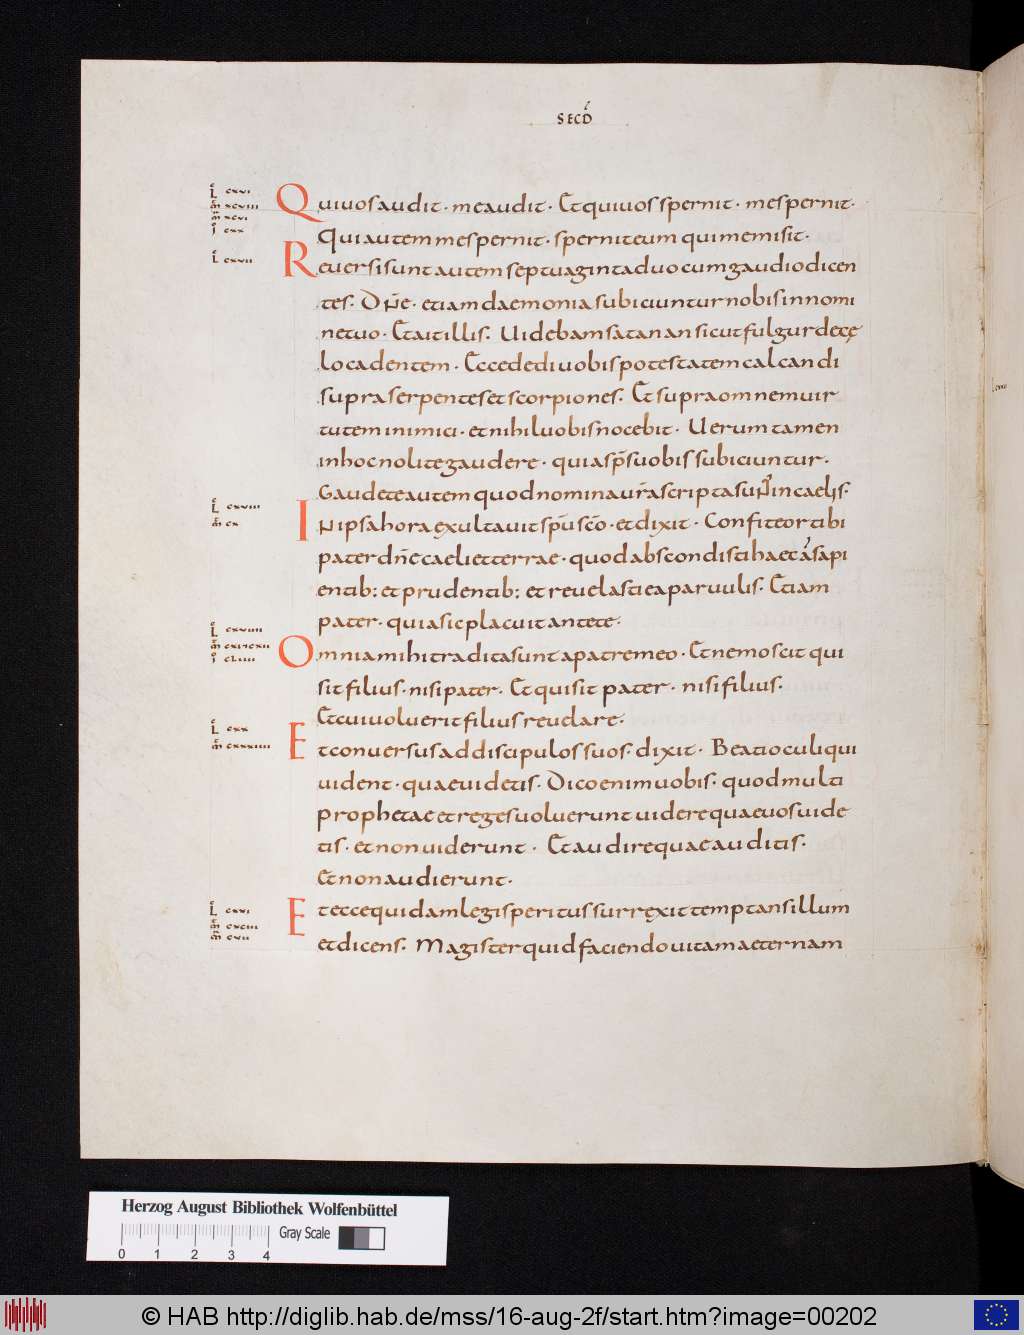 SECD̄
L̄ cxvi
m̄ xcviii
m̄ xcvi
ī cxx
Quiuos audit· me audit· Et qui uos spernit· me spernit·
Qui autem me spernit· spernit eum qui me misit·
L̄ cxvii
Reuersi sunt autem septuaginta duo cum gaudio dicen
tes· Dn̄e· etiam daemonia subiciuntur nobis in nomi
ne tuo· Et ait illis· Uidebam satanan sicut fulgur de cę
lo cadentem· Ecce dedi uobis potestatem calcandi
supra serpentes et scorpiones· Et supra omnem uir
tutem inimici· et nihil uobis nocebit· Uerum tamen
in hoc nolite gaudere· quia sp̄s uobis subiciuntur·
Gaudete autem quod nomina ur̄a scripta sunt in caelis·
L̄ cxviii
m̄ cx
IN ipsa hora exultauit sp̄u sc̄o· et dixit· Confiteor tibi
pater dn̄e caeli et terrae· quod abscondisti haec a sapi
entib; et prudentib; et reuelasti ea paruulis· Etiam
pater· quia sic placuit ante te·
L̄ cxviiii
m̄ cxi cxii
ī cliiii
Omnia mihi tradita sunt a patre meo· Et nemo scit qui
sit filius· nisi pater· Et qui sit pater· nisi filius·
Et cui uoluerit filius reuelare·
L̄ cxx
m̄ cxxxiiii
Et conuersus ad discipulos suos· dixit· Beati oculi qui
uident· quae uidetis· Dico enim uobis· quod multi
prophetae et reges uoluerunt uidere quae uos uide
tis· et non uiderunt· Et audire quae auditis·
Et non audierunt·
L̄ cxxi
m̄ cxciii
m̄ cxii
Et ecce quidam legis peritus surrexit temptans illum
et dicens· Magister quid faciendo uitam aeternam
Herzog August Bibliothek Wolfenbüttel
Gray Scale
0 1 2 3 4
© HAB http://diglib.hab.de/mss/16-aug-2f/start.htm?image=00202